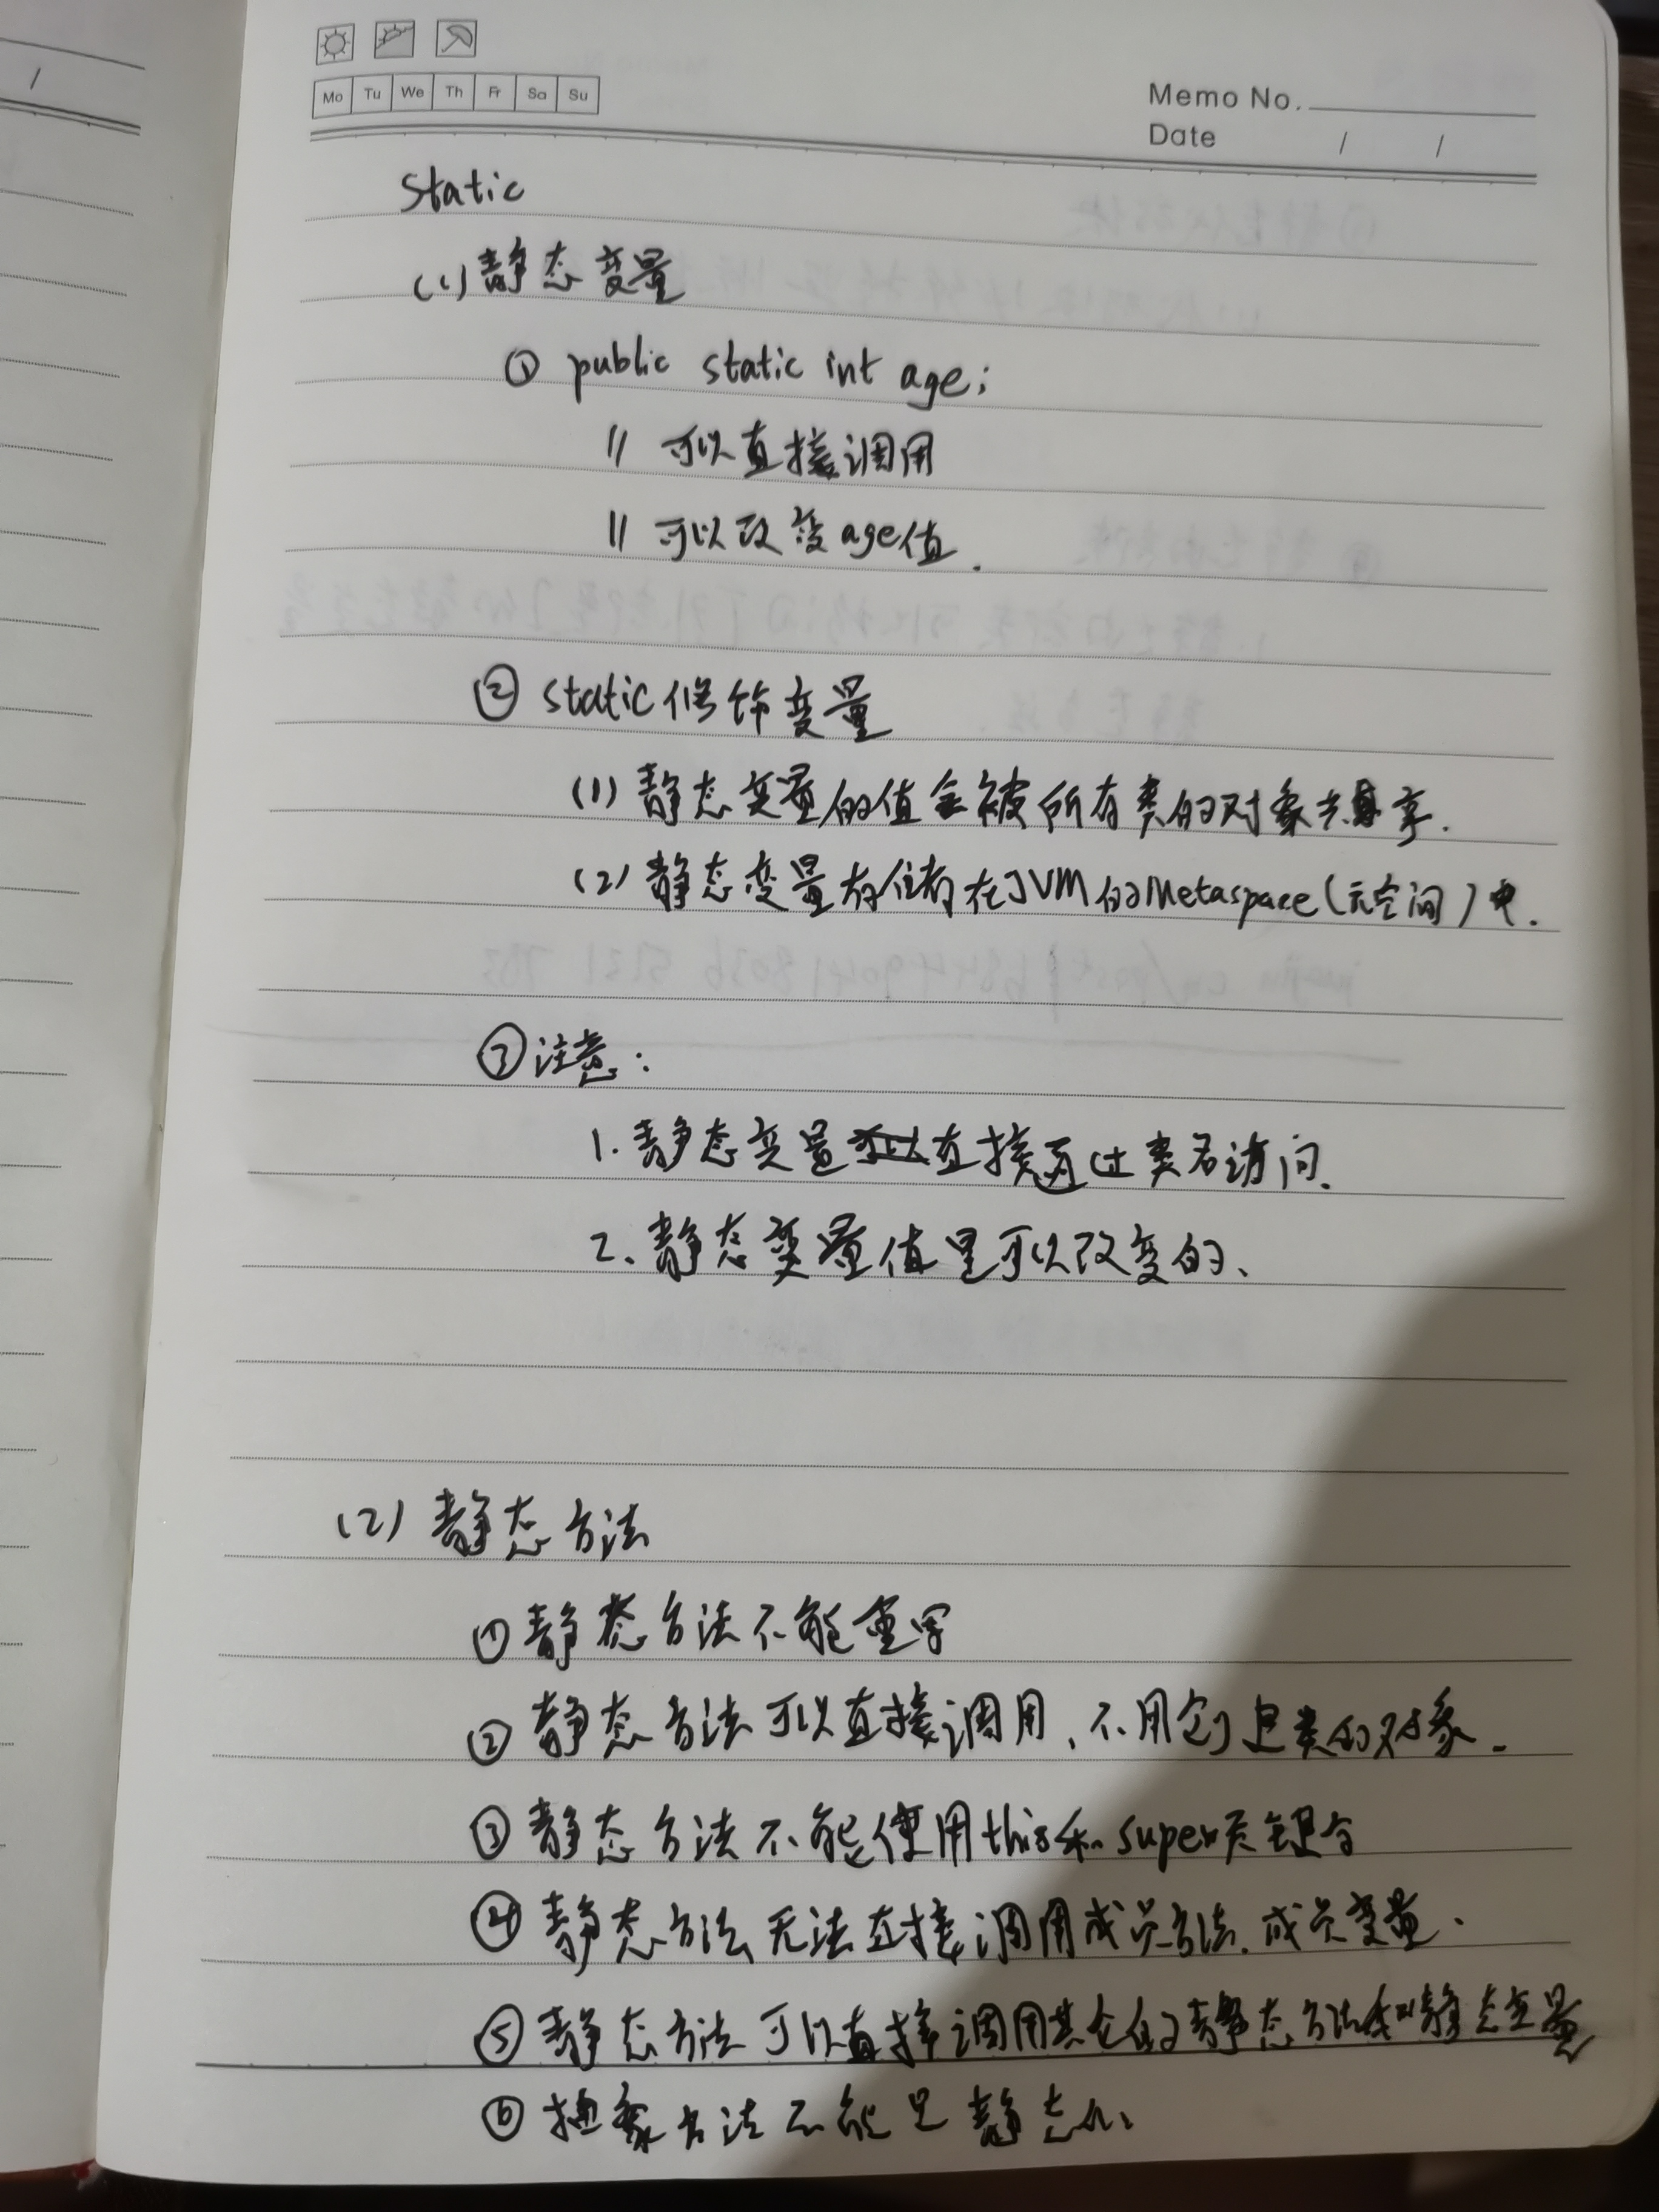 Mo Tu We Th Fr Sa Su
Memo No.
Date / /
static
(1) 静态变量
① public static int age;
// 可以直接调用
// 可以改变age值.
② static修饰变量
(1) 静态变量的值会被所有类的对象共享.
(2) 静态变量存储在JVM的Metaspace(元空间)中.
③注意:
1. 静态变量可以直接通过类名访问.
2. 静态变量值是可以改变的、
(2) 静态方法
①静态方法不能重写
②静态方法可以直接调用、不用创建类的对象.
③静态方法不能使用this和super关键字
④静态方法无法直接调用成员方法、成员变量、
⑤静态方法可以直接调用其他的静态方法和静态变量
⑥抽象方法不能是静态的、